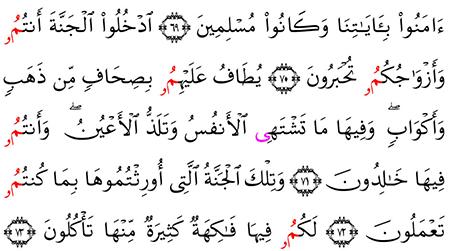 ءَامَنُوا۟ بِـَٔايَـٰتِنَا وَكَانُوا۟ مُسْلِمِينَ ﴿٦٩﴾ ٱدْخُلُوا۟ ٱلْجَنَّةَ أَنتُمُۥ
وَأَزْوَٰجُكُمُۥ تُحْبَرُونَ ﴿٧٠﴾ يُطَافُ عَلَيْهِمُۥ بِصِحَافٍ مِّن ذَهَبٍ
وَأَكْوَابٍ ۖ وَفِيهَا مَا تَشْتَهِى ٱلْأَنفُسُ وَتَلَذُّ ٱلْأَعْيُنُ ۖ وَأَنتُمُۥ
فِيهَا خَـٰلِدُونَ ﴿٧١﴾ وَتِلْكَ ٱلْجَنَّةُ ٱلَّتِىٓ أُورِثْتُمُوهَا بِمَا كُنتُمُۥ
تَعْمَلُونَ ﴿٧٢﴾ لَكُمُۥ فِيهَا فَـٰكِهَةٌ كَثِيرَةٌ مِّنْهَا تَأْكُلُونَ ﴿٧٣﴾